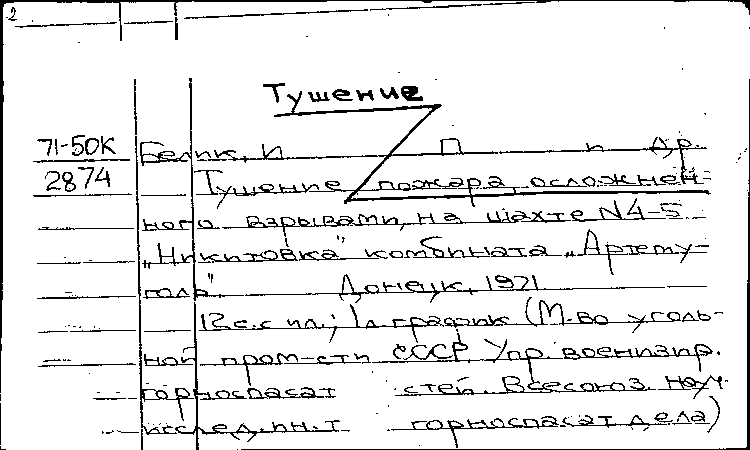 2
Тушение
71-50К Белик, И П и др.
2874 Тушение пожара, осложнен-
ного взрывами, на шахте N4-5
„Никитовка" комбината „Артему-
голь". Донецк, 1971
12 с. с ил.; 1 л. график (М-во уголь-
ной пром-сти СССР. Упр. военизир.
горноспасат стей. Всесоюз. науч.
исслед. ин-т горноспасат дела)